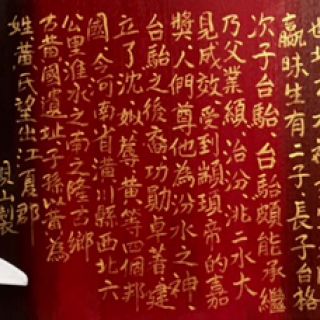 嬴昧生有二子,長子台格
次子台駘、台駘頗能承繼
乃父業績,治汾、洮二水大
見成效,受到顓頊帝的嘉
獎,人們尊他為汾水之神、
台駘之後裔,功勛卓著建
立了沈、姒、蓐、黃等四個邦
國、今河南省潢川縣西北六
公里淮水之南之隆古鄉
古黃國遺址子孫以黃為
姓黃氏望出江夏郡
山製